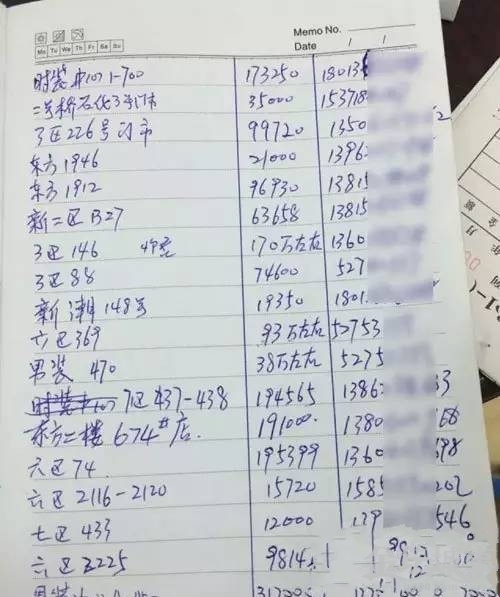 Memo No.
Mo Tu We Th Fr Sa Su
Date / /
时装中101 1-700 173250 18013
二号桥石化3号门市 35000 153718
3区226号门市 99720 1350
东方1946 21000 1396
东方1912 96930 13815
新二区B27 63658 13815
3区146 170万左右 1360
3区88 74600 527
新潮148号 19350 1801
六区369 93万左右 52753
男装 470 38万左右 5275
7区437-438 194565 1386 3
东方二楼674#店. 191000. 1380 68
六区74 195399 1360 98
六区2116-2120 15720 1585 202
七区433 12000 139 546
六区2225 9814.1